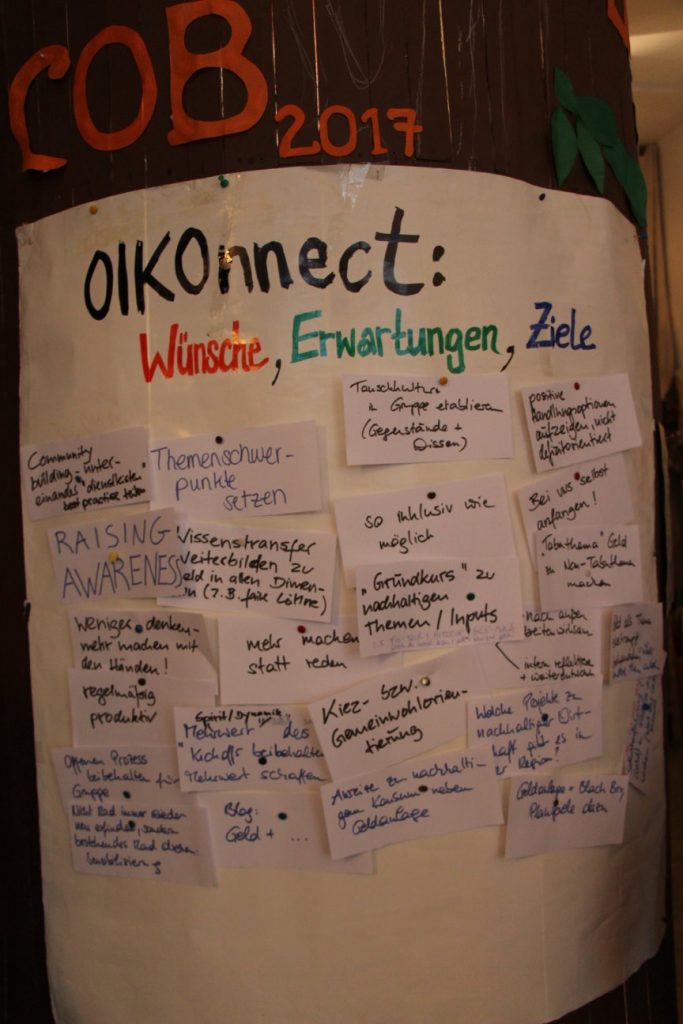 COB 2017
OIKOnnect:
Wünsche, Erwartungen, Ziele
Tauschkultur
in Gruppe etablieren
(Gegenstände +
Wissen)
positive
Handlungsoptionen
aufzeigen, nicht
defizitorientiert
Community
building - unter-
einander
best practice teilen
Themenschwer-
punkte
setzen
so inklusiv wie
möglich
Bei uns selbst
anfangen!
RAISING
AWARENESS
Wissenstransfer
Weiterbilden zu
Geld in allen Dimen-
sion (z.B. faire Löhne)
"Grundkurs" zu
nachhaltigen
Themen / Inputs
"Tabuthema" Geld
zu Non-Tabuthema
machen
Weniger denken -
mehr machen mit
den Händen!
mehr machen
statt reden
nach außen
intern reflektieren
+ weiterentwickeln
regelmäßig
produktiv
Spirit/Dynamik
Mehrwert des
"Kickoffs beibehalten
Mehrwert schaffen
Kiez- bzw.
Gemeinwohlorien-
tierung
Welche Projekte zu
nachhaltiger Wirt-
schaft gibt es in
der Region?
Offenen Prozess
beibehalten für
Gruppe
Nicht Rad immer wieder
neu erfinden, sondern
bestehendes Rad drehen.
Sensibilisierung
Blog:
Geld + ...
Anreize zu nachhalti-
gem Konsum neben
Geldanlage
Geldanlage = Black Box,